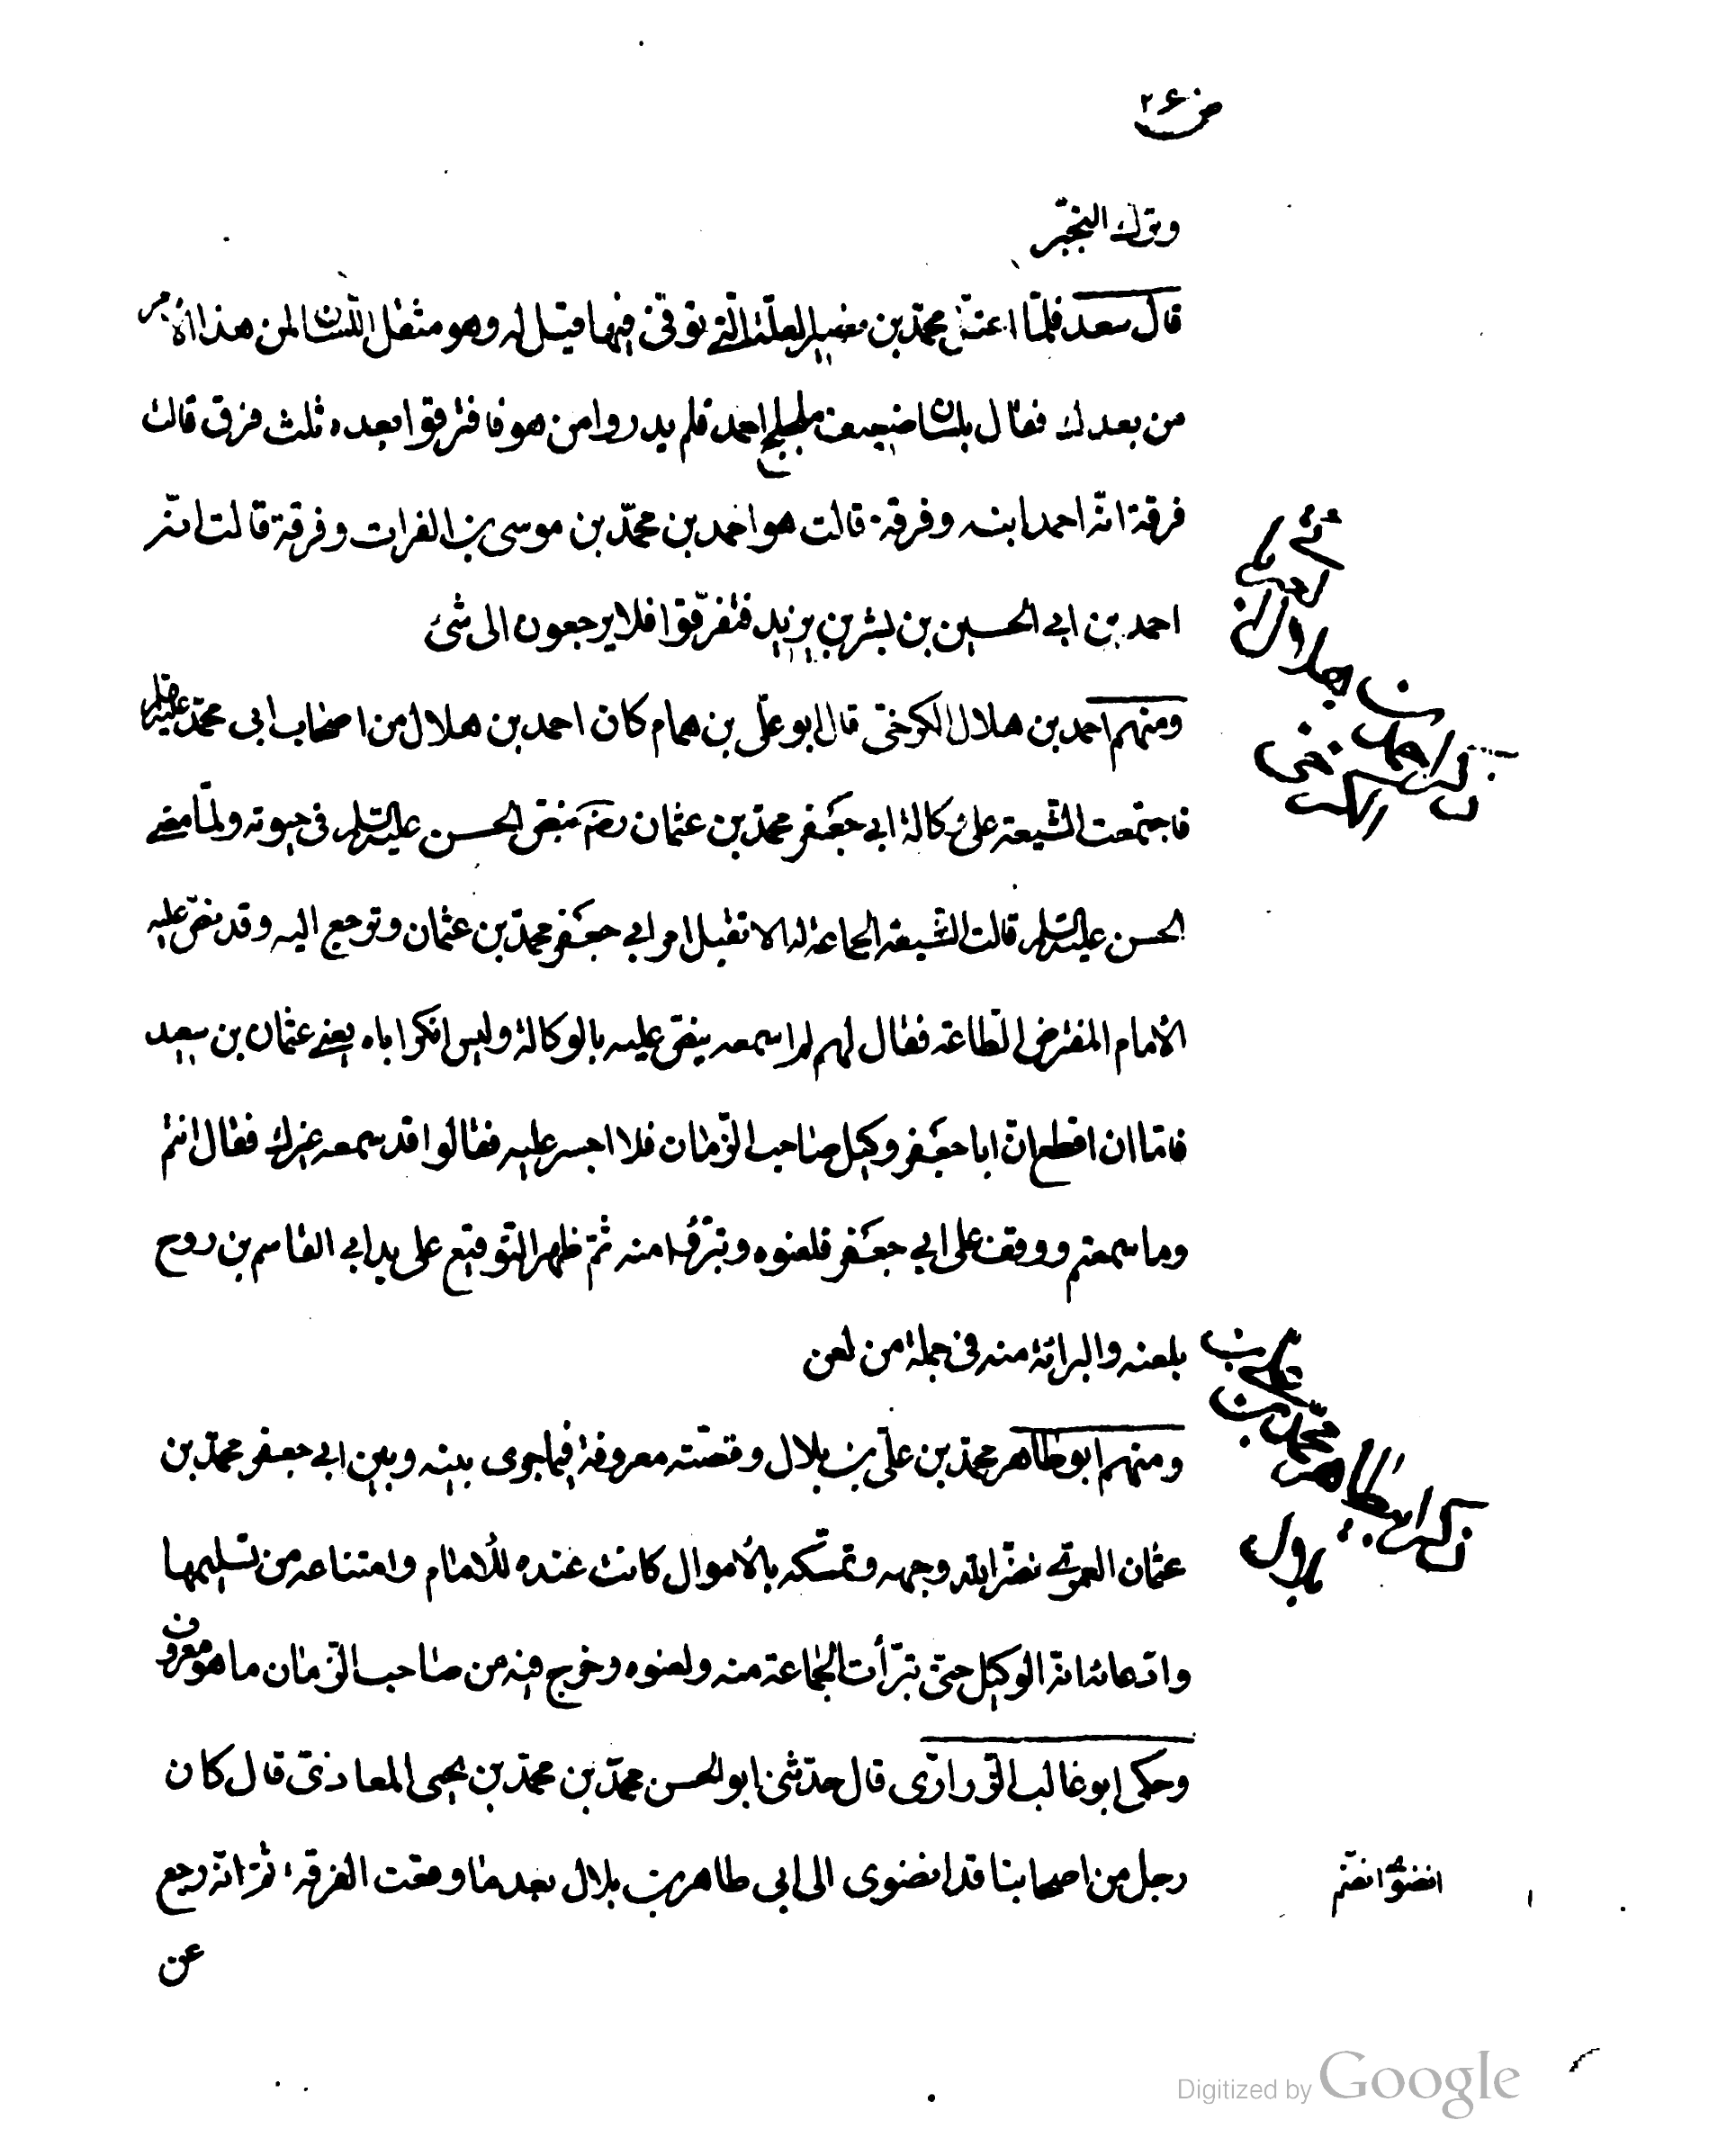 ص ٢٤
وترك التجبّر
قال سعد فلمّا اعتلّ محمّد بن نصير العلّة الّتي توفّي فيها قيل له وهو مثقل اللّسان لمن هذا الأمر
من بعدك فقال بلسان ضعيف ملجلج احمد فلم يدروا من هو فافترقوا بعده ثلث فرق قالت
فرقة انّه احمد ابنه وفرقة قالت هو احمد بن محمّد بن موسى بن الفرات وفرقة قالت انّه
احمد بن ابي الحسين بن بشر بن يزيد فتفرّقوا فلا يرجعون الى شئ
ومنهم احمد بن هلال الكرخيّ قال ابو عليّ بن همام كان احمد بن هلال من اصحاب ابي محمّد عليه السلم
فاجتمعت الشّيعة على وكالة ابي جعفر محمّد بن عثمان رضه بنصّ الحسن عليه السّلم في حيوته ولمّا مضى
الحسن عليه السّلم قالت الشّيعة الجماعة له الا تقبل امر ابي جعفر محمّد بن عثمان وترجع اليه وقد نصّ عليه
الأمام المفترض الطّاعة فقال لهم لم اسمعه ينصّ عليه بالوكالة وليس انكر اباه يعني عثمان بن سعيد
فامّا ان اقطع انّ ابا جعفر وكيل صاحب الزّمان فلا اجسر عليه فقالوا قد سمعه غيرك فقال انتم
وما سمعتم ووقف على ابي جعفر فلعنوه وتبرّؤا منه ثمّ ظهر التوقيع على يد ابي القاسم بن روح
بلعنه والبرائة منه في جملة من لعن
ومنهم ابو طاهر محمّد بن عليّ بن بلال وقصّته معروفة فيما جرى بينه وبين ابي جعفر محمّد بن
عثمان العمريّ نضّر الله وجهه وتمسّكه بالأموال كانت عنده للأمام وامتناعه من تسليمها
وادّعائه انّه الوكيل حتّى تبرّأت الجماعة منه ولعنوه وخرج فيه من صاحب الزّمان ما هو معروف
وحكى ابو غالب الزّراريّ قال حدّثني ابو الحسن محمّد بن محمّد بن يحيى المعاذيّ قال كان
رجل من اصحابنا قد انضوى الى ابي طاهر بن بلال بعد ما وقعت الفرقة ثمّ انّه رجع
عن
ذكر احمد بن هلال
الكرخي
ذكر ابي طاهر محمّد بن علي بن
بلال
انضوى انضمّ
Digitized by Google